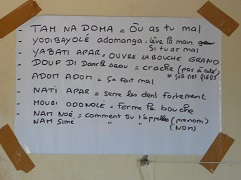 - TAM NA DOMA = OÙ as tu mal
- YODIBAYOLÉ adomanga : lève la main
Si tu as mal
- YABATI APAR, OUVRE LA BOUCHE GRAND
- DOUP DI = crache (pas à côté)
- ADOM ADOM = ça fait mal
- NATI APAR = serre les dents fortement
- MOUBI ODONOLÉ = ferme la bouche
- NAM NOÉ = comment tu t'appelles (prenom)
NAM SIMÉ (NOM)